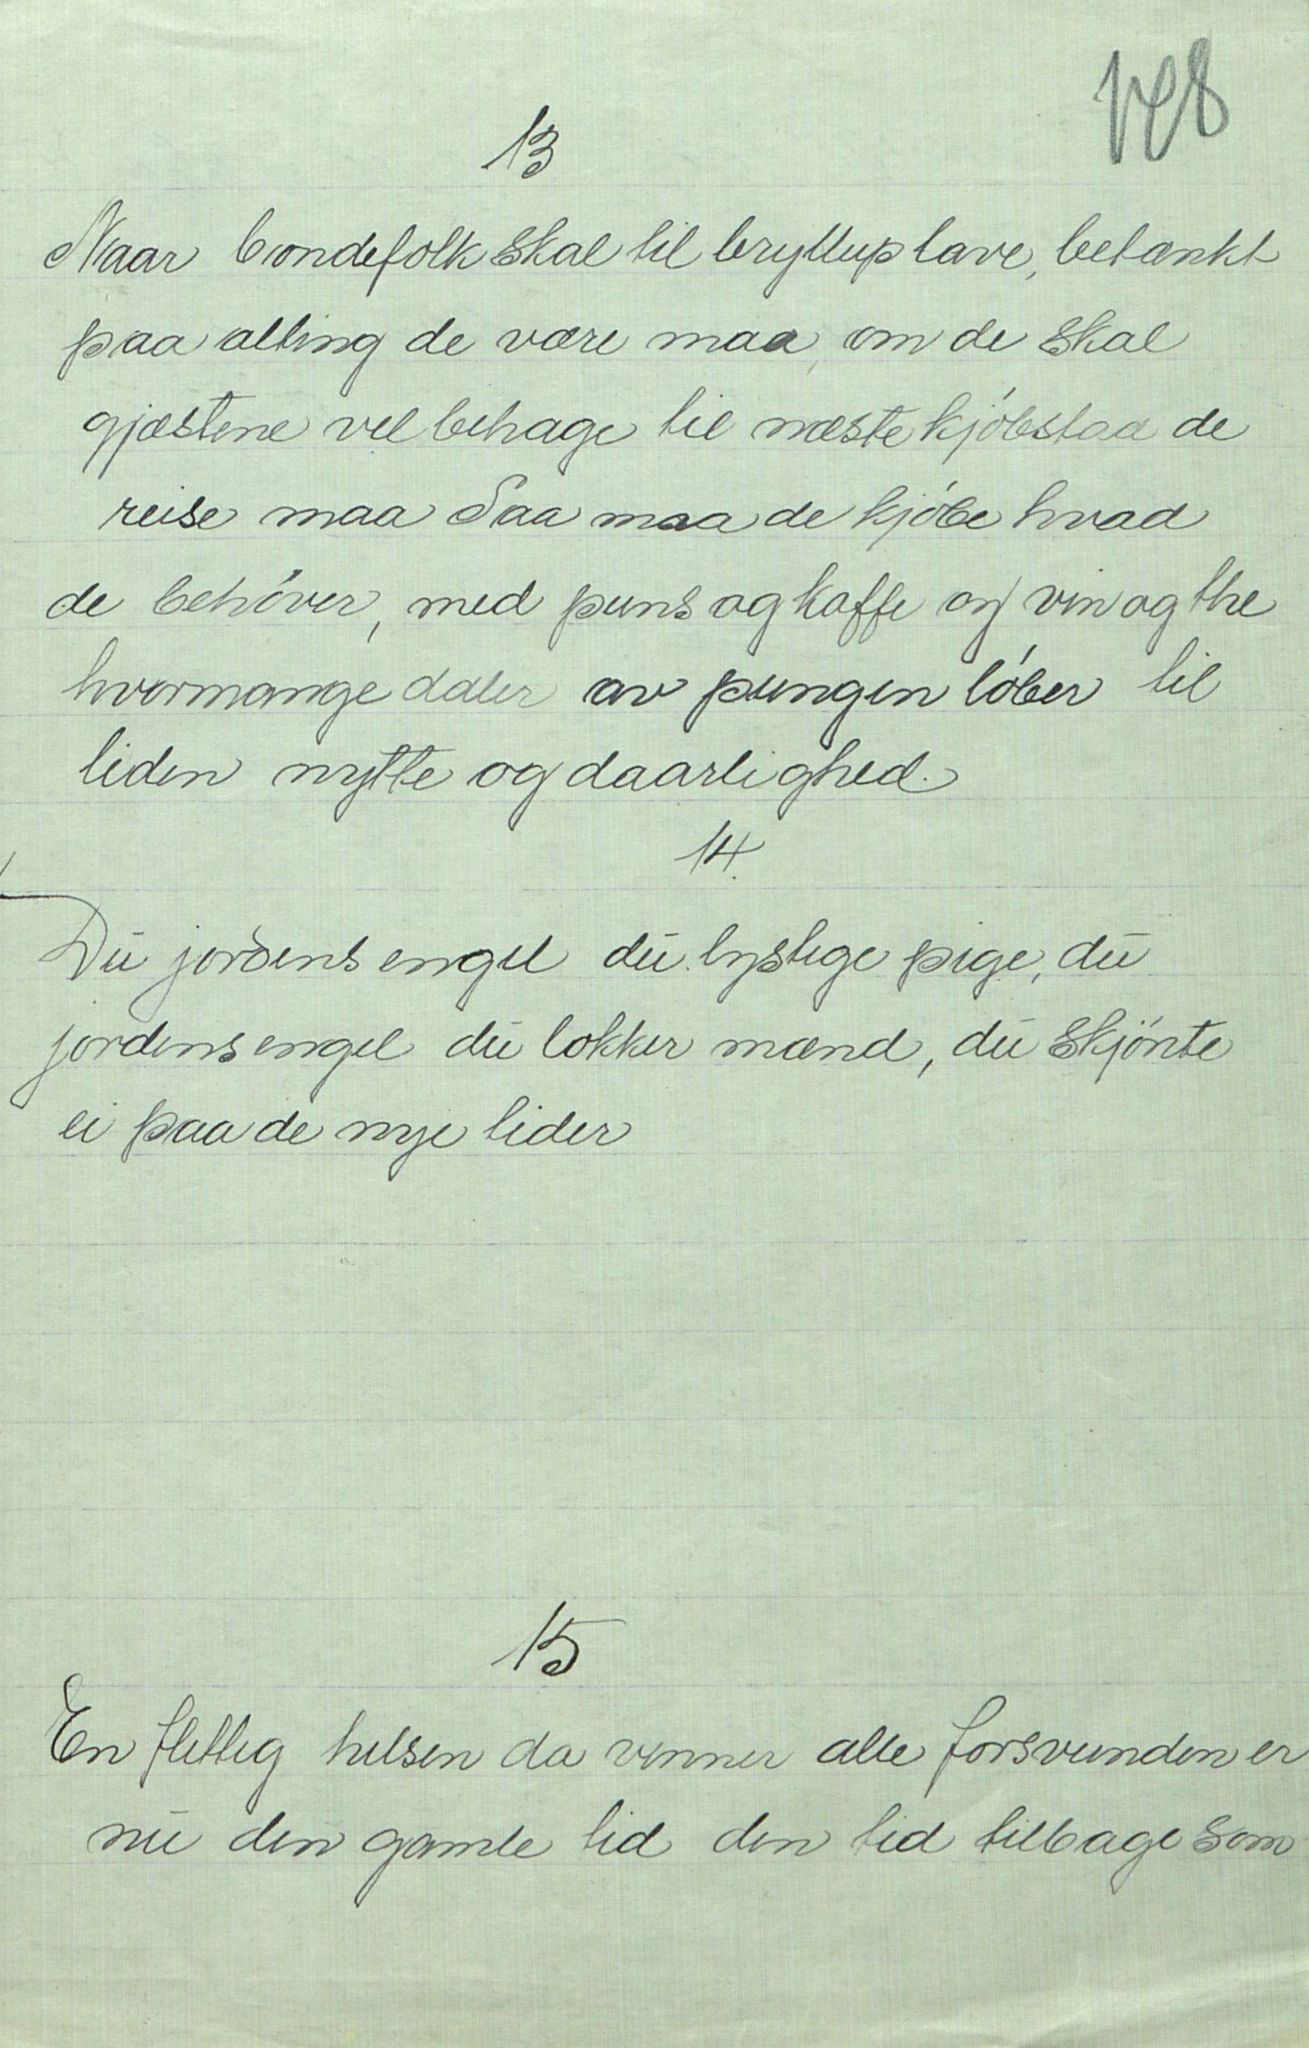 13
Naar bondefolk skal til bryllup lave, betænkt
paa alting de være maa, om de skal
gjæstene vel behage til næste kjóbstaa de
reise maa Saa maa de kjóbe hvad
de behóver, med puns og kaffe og vin og the
hvormange daler av pungen lóber til
liden nytte og daarlighed.
14.
Dū jordens engel dū lystige pige, dū
jordens engel dū lokker mænd, dū skjónte
ei paa de nye tider
15
En flittig hilsen da venner alle forsvunden er
nū den gamle tid den tid tilbage som